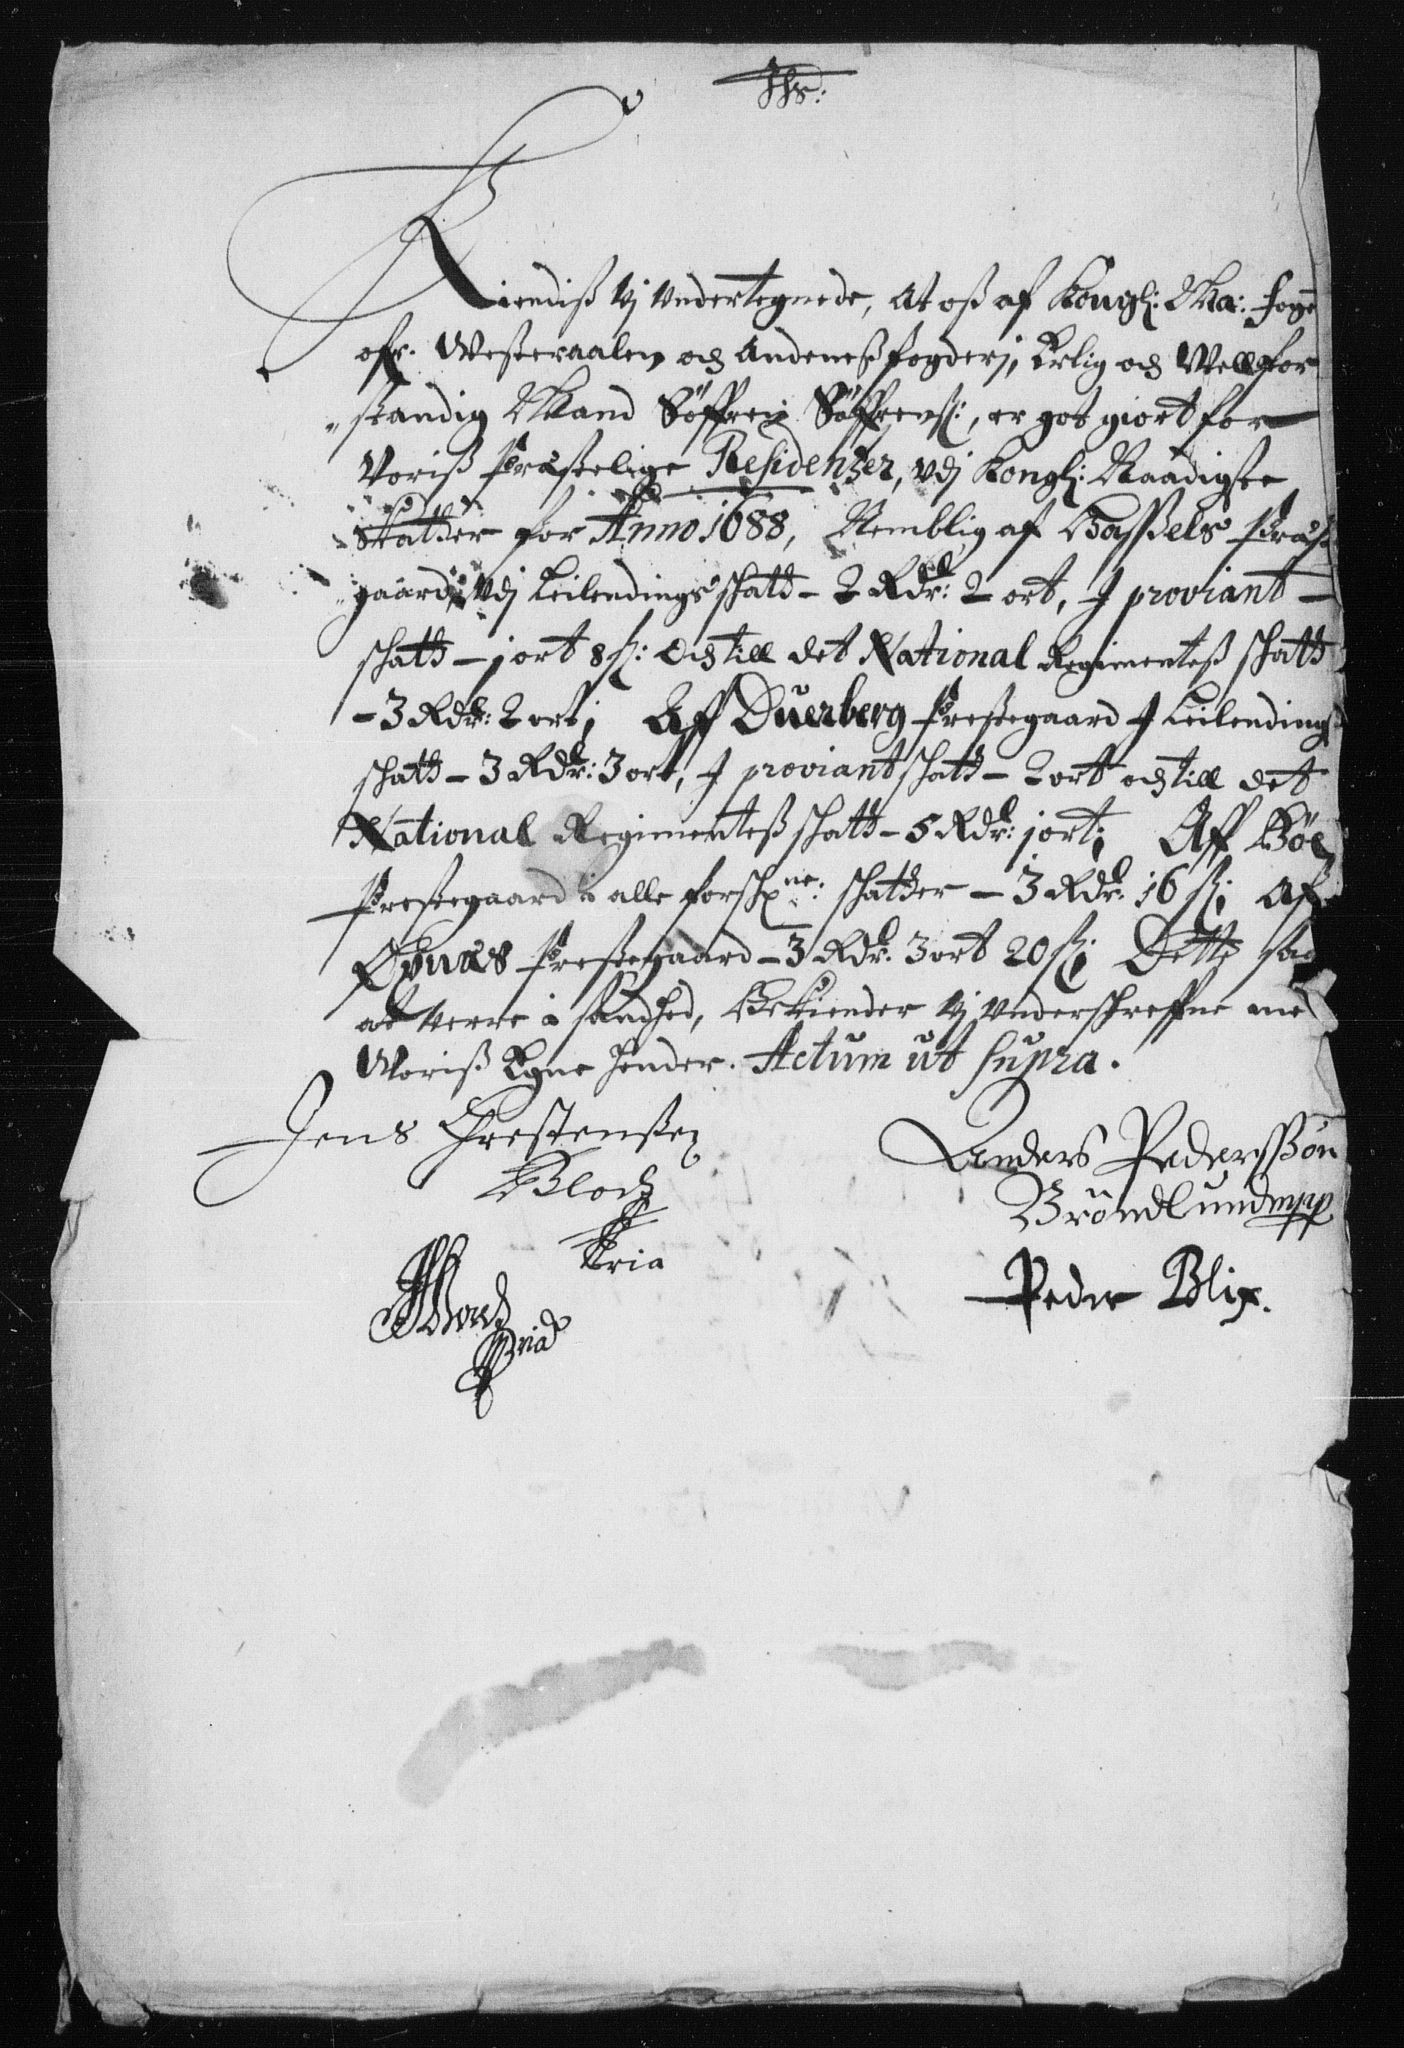 Ihs:
Kiendiß Vj Vndertegnede, At oß af Kongl: Ma: foge
ofr. Westeraalen och Andeneß fogderj, Erlig och Velfor
standig Mand Söffren Söffrensß:, er got giort for
Voriß Præstelige Residentzer, Vdj Kongl: Naadigste
Skatter for Anno 1688, Nemblig af Hassels Præste
gaard, Vdj Leilendings schatt - 2 Rdr: 2 ort, I proviant
schatt - j ort 8 ß: Och till det National Regimenteß schatt
- 3 Rdr: 2 ort; Aff Duerberg Prestegaard I Leilendings
schatt - 3 Rdr: 3 ort, I proviant schatt - 2 ort och till det
National Regimenteß schatt - 5 Rdr: j ort; Aff Böe
Prestegaard i alle forschne: schatter - 3 Rdr: 16 ß; Af
Öxnæs Prestegaard - 3 Rdr. 3 ort 20 ß; Dette saa
at Verre i sandhed, Bekiender Vj Vnderschreffne me
Voriß Egne hender. Actum ut supra.
Jens Chrestenßen
Bloch
Anders Pederssön
Bröndlund mpp
Peder Blix.